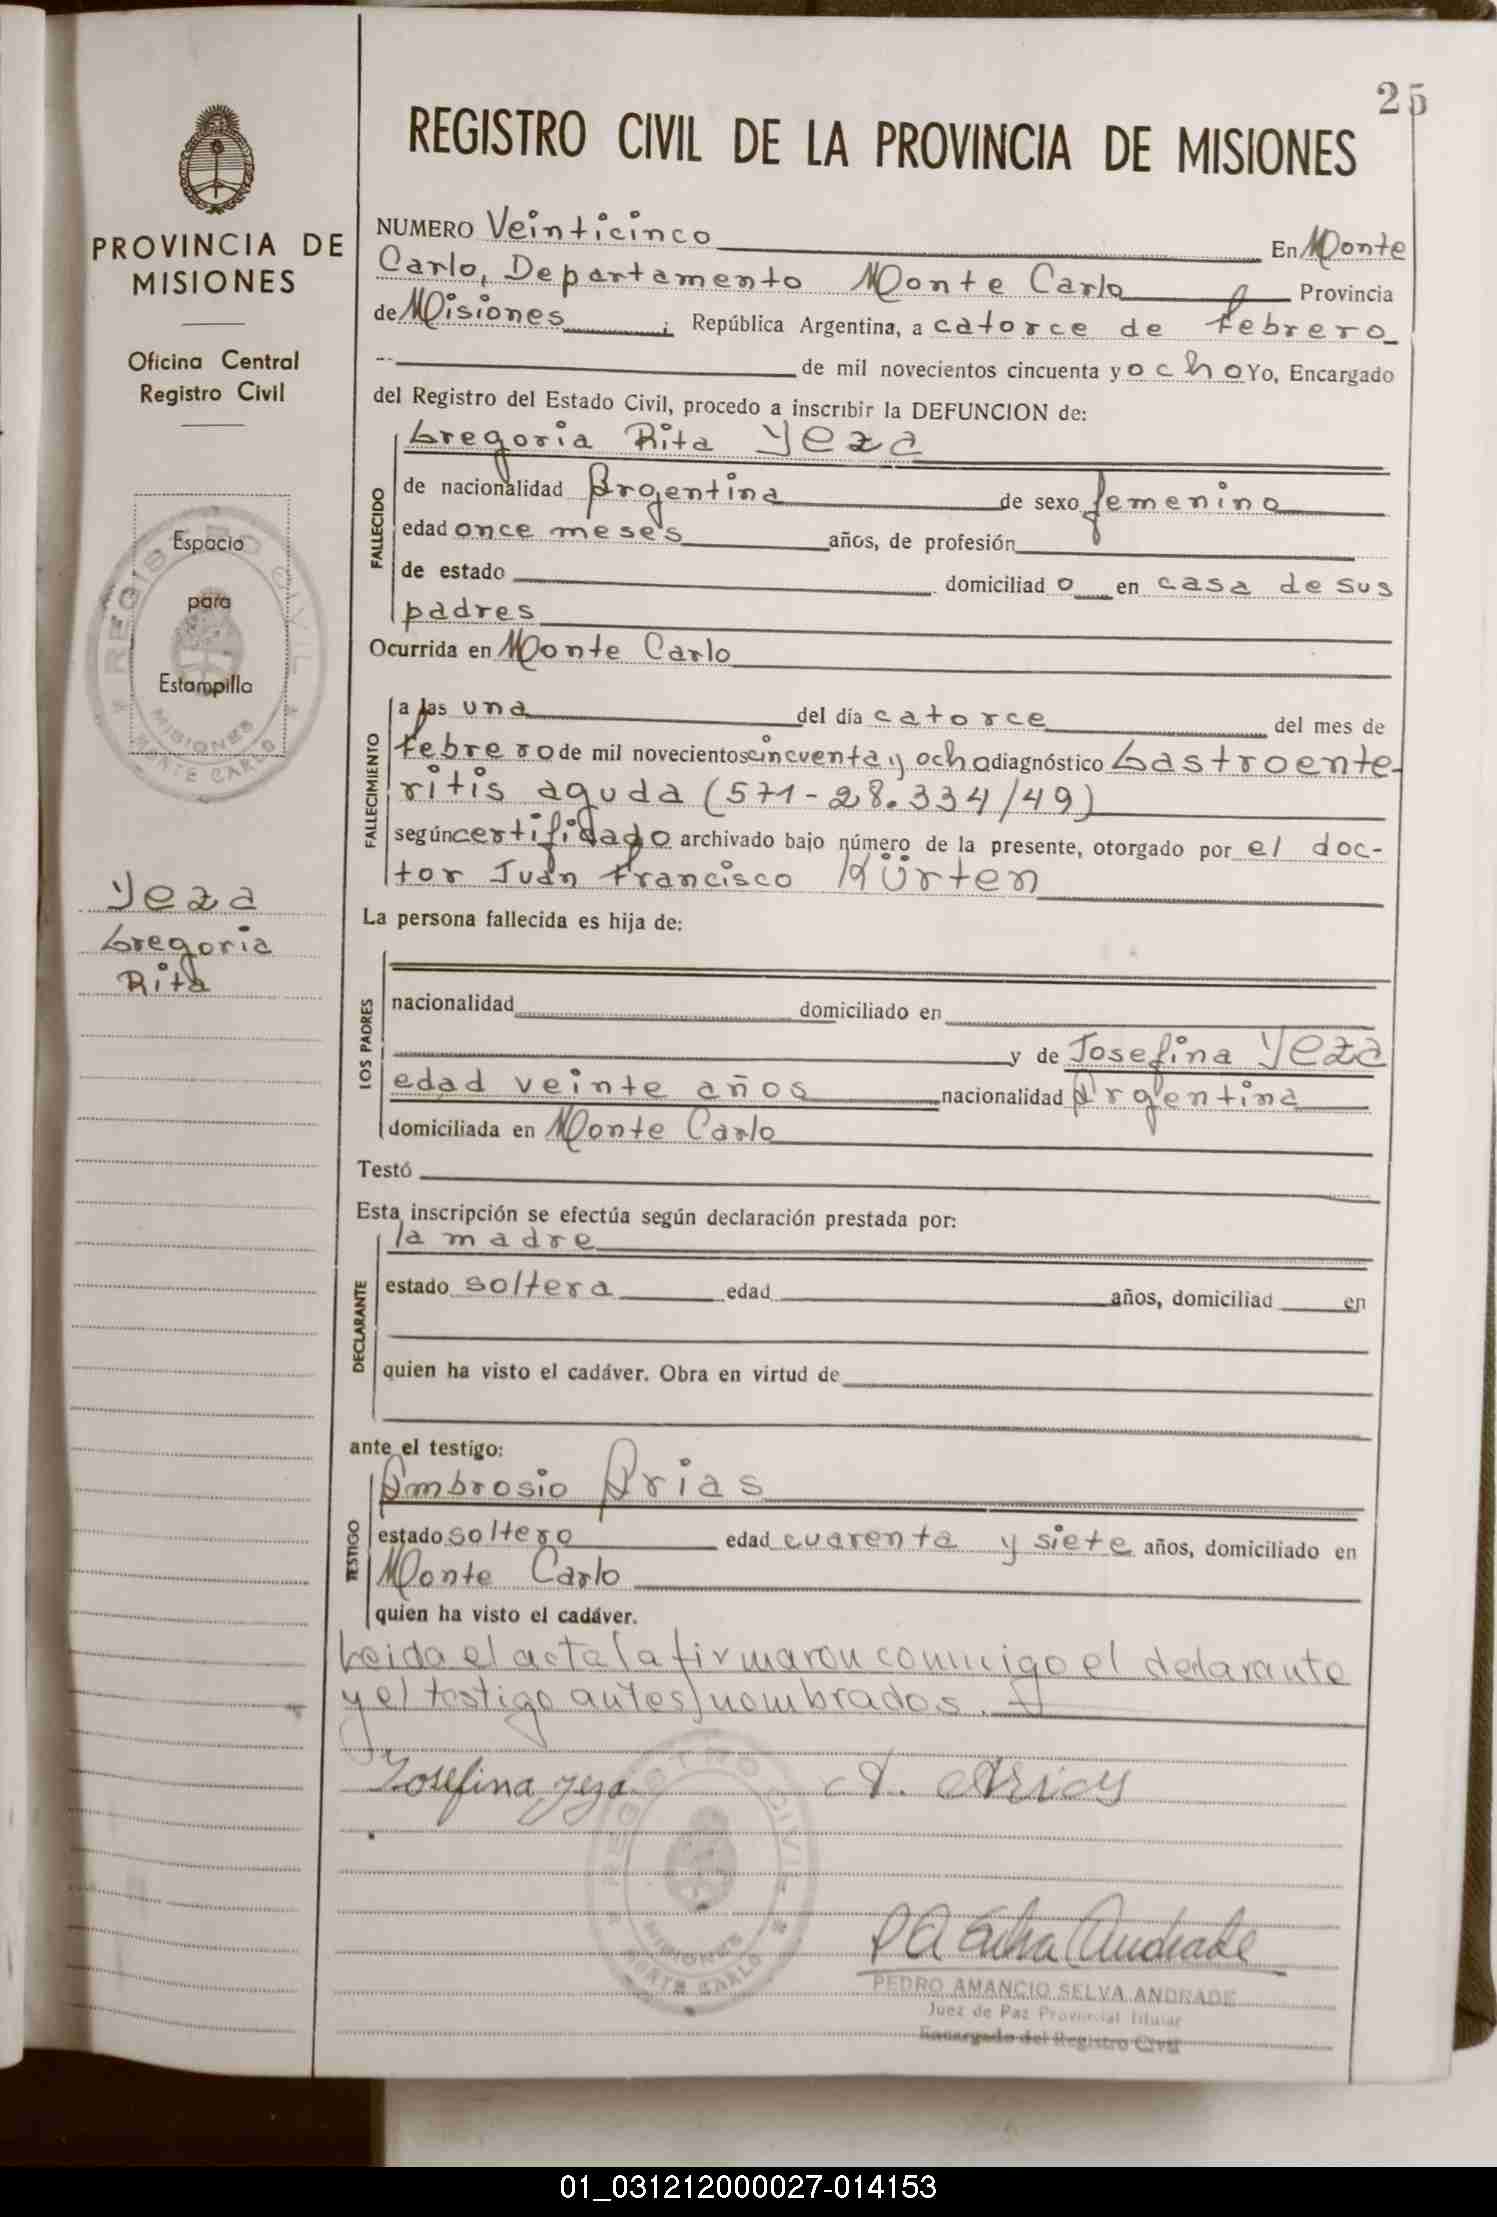 25
REGISTRO CIVIL DE LA PROVINCIA DE MISIONES
PROVINCIA DE
MISIONES
Oficina Central
Registro Civil
Espacio
para
Estampilla
REGISTRO CIVIL
MISIONES
MONTE CARLO
Yeza
Gregoria
Rita
NUMERO Veinticinco En Monte
Carlo, Departamento Monte Carlo Provincia
de Misiones ; República Argentina, a catorce de febrero
de mil novecientos cincuenta y ocho Yo, Encargado
del Registro del Estado Civil, procedo a inscribir la DEFUNCION de:
FALLECIDO
Gregoria Rita Yeza
de nacionalidad Argentina de sexo femenino
edad once meses años, de profesión
de estado domiciliado en casa de sus
padres
Ocurrida en Monte Carlo
FALLECIMIENTO
a las una del día catorce del mes de
febrero de mil novecientos cincuenta y ocho diagnóstico Gastroente-
ritis aguda (571-28.334/49)
según certifidado archivado bajo número de la presente, otorgado por el doc-
tor Juan Francisco Kürten
La persona fallecida es hija de:
LOS PADRES
nacionalidad domiciliado en
y de Josefina Yeza
edad veinte años nacionalidad Argentina
domiciliada en Monte Carlo
Testó
Esta inscripción se efectúa según declaración prestada por:
DECLARANTE
la madre
estado soltera edad años, domiciliad en
quien ha visto el cadáver. Obra en virtud de
ante el testigo:
TESTIGO
Ambrosio Arias
estado soltero edad cuarenta y siete años, domiciliado en
Monte Carlo
quien ha visto el cadáver.
Leida el acta la firmaron conmigo el declarante
y el testigo antes nombrados.
Josefina yeza A. Arias
REGISTRO CIVIL
MISIONES
MONTE CARLO
P A Selva Andrade
PEDRO AMANCIO SELVA ANDRADE
Juez de Paz Provincial Titular
Encargado del Registro Civil
01_031212000027-014153